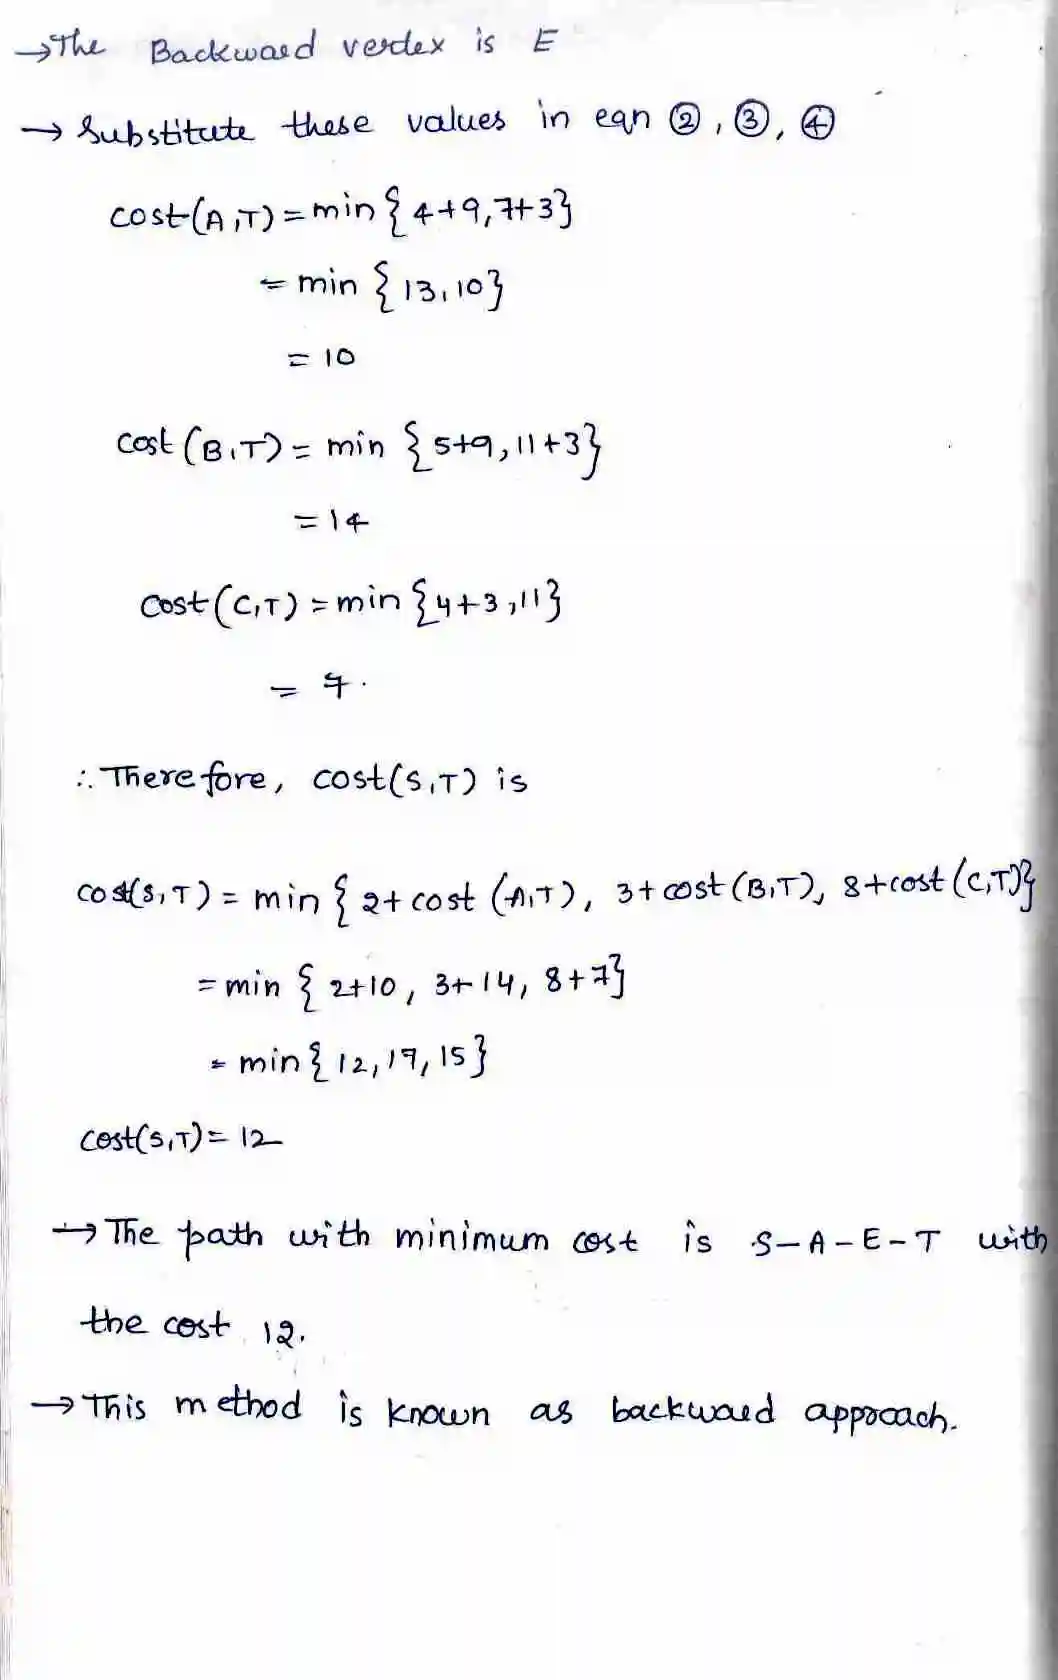 →The Backward vertex is E
→ Substitute these values in eqn ②, ③, ④
cost(A,T) = min { 4+9, 7+3}
= min { 13, 10}
= 10
cost (B,T) = min { 5+9, 11+3}
= 14
cost (C,T) = min {4+3, 11}
= 7.
∴ Therefore, cost(S,T) is
cost(S,T) = min { 2+ cost (A,T), 3+ cost (B,T), 8+cost (C,T)}
= min { 2+10, 3+14, 8+7}
= min { 12, 17, 15}
cost(S,T) = 12
→ The path with minimum cost is S-A-E-T with
the cost 12.
→ This method is known as backward approach.